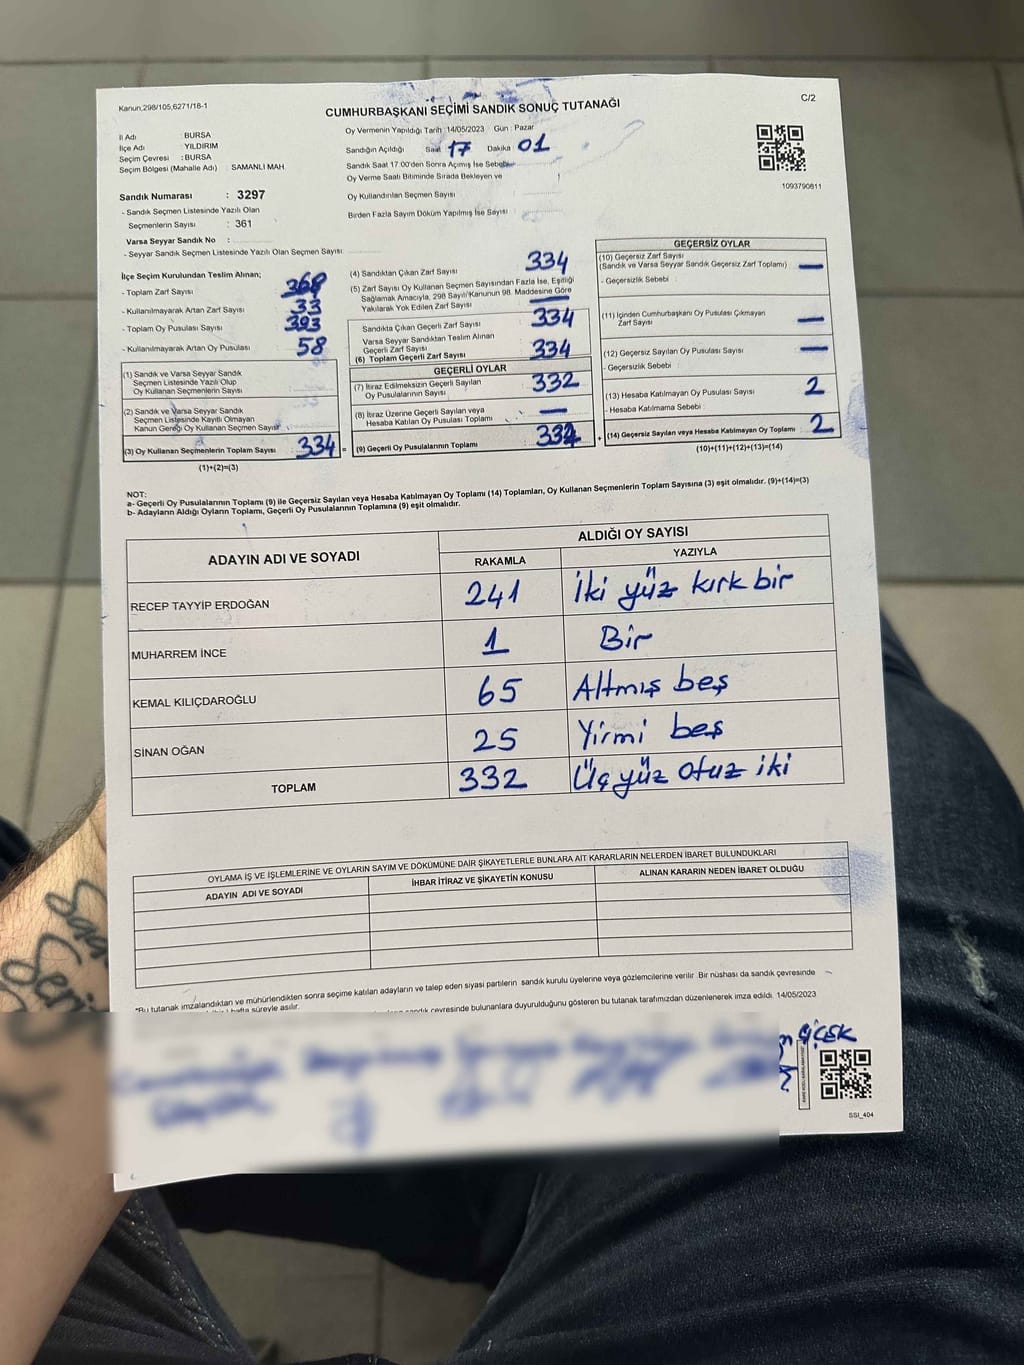 Kanun,298/105,6271/18-1
C/2
CUMHURBAŞKANI SEÇİMİ SANDIK SONUÇ TUTANAĞI
İl Adı : BURSA
İlçe Adı : YILDIRIM
Seçim Çevresi : BURSA
Seçim Bölgesi (Mahalle Adı) : SAMANLI MAH
Oy Vermenin Yapıldığı Tarih :14/05/2023 Gün : Pazar
Sandığın Açıldığı Saat 17 Dakika 01
Sandık Saat 17:00'den Sonra Açımış İse Sebebi
Oy Verme Saati Bitiminde Sırada Bekleyen ve
Oy Kullandırılan Seçmen Sayısı
Birden Fazla Sayım Döküm Yapılmış İse Sayısı
1093790811
Sandık Numarası : 3297
- Sandık Seçmen Listesinde Yazılı Olan
Seçmenlerin Sayısı : 361
Varsa Seyyar Sandık No :
- Seyyar Sandık Seçmen Listesinde Yazılı Olan Seçmen Sayısı:
İlçe Seçim Kurulundan Teslim Alınan;
- Toplam Zarf Sayısı 368
- Kullanılmayarak Artan Zarf Sayısı 33
- Toplam Oy Pusulası Sayısı 393
- Kullanılmayarak Artan Oy Pusulası 58
(1) Sandık ve Varsa Seyyar Sandık
Seçmen Listesinde Yazılı Olup
Oy Kullanan Seçmenlerin Sayısı
(2) Sandık ve Varsa Seyyar Sandık
Seçmen Listesinde Kayıtlı Olmayan
Kanun Gereği Oy Kullanan Seçmen Sayısı
(3) Oy Kullanan Seçmenlerin Toplam Sayısı 334 =
(1)+(2)=(3)
(4) Sandıktan Çıkan Zarf Sayısı 334
(5) Zarf Sayısı Oy Kullanan Seçmen Sayısından Fazla İse, Eşitliği
Sağlamak Amacıyla, 298 Sayılı Kanunun 98. Maddesine Göre
Yakılarak Yok Edilen Zarf Sayısı —
Sandıkta Çıkan Geçerli Zarf Sayısı 334
Varsa Seyyar Sandıktan Teslim Alınan
Geçerli Zarf Sayısı
(6) Toplam Geçerli Zarf Sayısı 334
GEÇERLİ OYLAR
(7) İtiraz Edilmeksizin Geçerli Sayılan
Oy Pusulasının Sayısı 332
(8) İtiraz Üzerine Geçerli Sayılan veya
Hesaba Katılan Oy Pusulası Toplamı —
(9) Geçerli Oy Pusulalarının Toplamı 332 +
GEÇERSİZ OYLAR
(10) Geçersiz Zarf Sayısı
(Sandık ve Varsa Seyyar Sandık Geçersiz Zarf Toplamı) —
- Geçersizlik Sebebi :
(11) İçinden Cumhurbaşkanı Oy Pusulası Çıkmayan
Zarf Sayısı —
(12) Geçersiz Sayılan Oy Pusulası Sayısı —
- Geçersizlik Sebebi :
(13) Hesaba Katılmayan Oy Pusulası Sayısı 2
- Hesaba Katılmama Sebebi :
(14) Geçersiz Sayılan veya Hesaba Katılmayan Oy Toplamı 2
(10)+(11)+(12)+(13)=(14)
NOT:
a- Geçerli Oy Pusulalarının Toplamı (9) ile Geçersiz Sayılan veya Hesaba Katılmayan Oy Toplamı (14) Toplamları, Oy Kullanan Seçmenlerin Toplam Sayısına (3) eşit olmalıdır. (9)+(14)=(3)
b- Adayların Aldığı Oyların Toplamı, Geçerli Oy Pusulalarının Toplamına (9) eşit olmalıdır.
ADAYIN ADI VE SOYADI
ALDIĞI OY SAYISI
RAKAMLA YAZIYLA
RECEP TAYYİP ERDOĞAN 241 İki yüz kırk bir
MUHARREM İNCE 1 Bir
KEMAL KILIÇDAROĞLU 65 Altmış beş
SİNAN OĞAN 25 Yirmi beş
TOPLAM 332 Üç yüz otuz iki
OYLAMA İŞ VE İŞLEMLERİNE VE OYLARIN SAYIM VE DÖKÜMÜNE DAİR ŞİKAYETLERLE BUNLARA AİT KARARLARIN NELERDEN İBARET BULUNDUKLARI
ADAYIN ADI VE SOYADI İHBAR İTİRAZ VE ŞİKAYETİN KONUSU ALINAN KARARIN NEDEN İBARET OLDUĞU
*Bu tutanak imzalandıktan ve mühürlendikten sonra seçime katılan adayların ve talep eden siyasi partilerin sandık kurulu üyelerine veya gözlemcilerine verilir .Bir nüshası da sandık çevresinde
hafta süreyle asılır.
sandık çevresinde bulunanlara duyurulduğunu gösteren bu tutanak tarafımızdan düzenlenerek imza edildi. 14/05/2023
ÇİÇEK
SSI_404